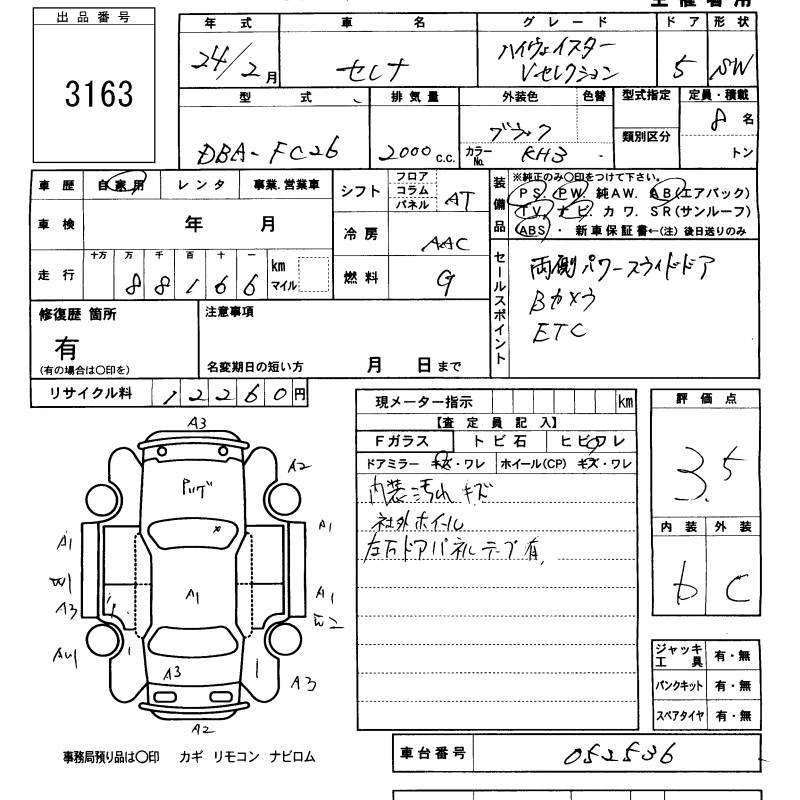 出品番号
3163
年式 車名 グレード ドア 形状
24/2月 セレナ ハイウェイスター Vセレクション 5 SW
型式 排気量 外装色 色替 型式指定 定員・積載
類別区分
DBA-FC26 2000c.c. ブラック 8名
カラーNo. KH3 トン
車歴 自家用 レンタ 事業.営業車
シフト フロア コラム パネル AT
装備品 ※純正のみ○印をつけて下さい。
PS. PW. 純AW. AB(エアバック)
TV. ナビ. カワ. SR(サンルーフ)
ABS・ 新車保証書←(注) 後日送りのみ
車検 年 月
冷房 AAC
走行 十万 万 千 百 十 一
88166 km マイル
燃料 G
セールスポイント
両側パワースライドドア
Bカメラ
ETC
修復歴 箇所
有
(有の場合は○印を)
注意事項
名変期日の短い方 月 日まで
リサイクル料 12260円
現メーター指示 km
【査定員記入】
Fガラス トビ石 ヒビワレ
ドアミラー キズ・ワレ ホイール(CP) キズ・ワレ
内装汚れ キズ
社外ホイール
左右ドアパネルテープ有
評価点
3.5
内装 外装
b C
A3
A2
A1
A1
W1
A3
A1
A1
A3
A3
A2
ジャッキ工具 有・無
パンクキット 有・無
スペアタイヤ 有・無
事務局預り品は○印 カギ リモコン ナビロム
車台番号 052536